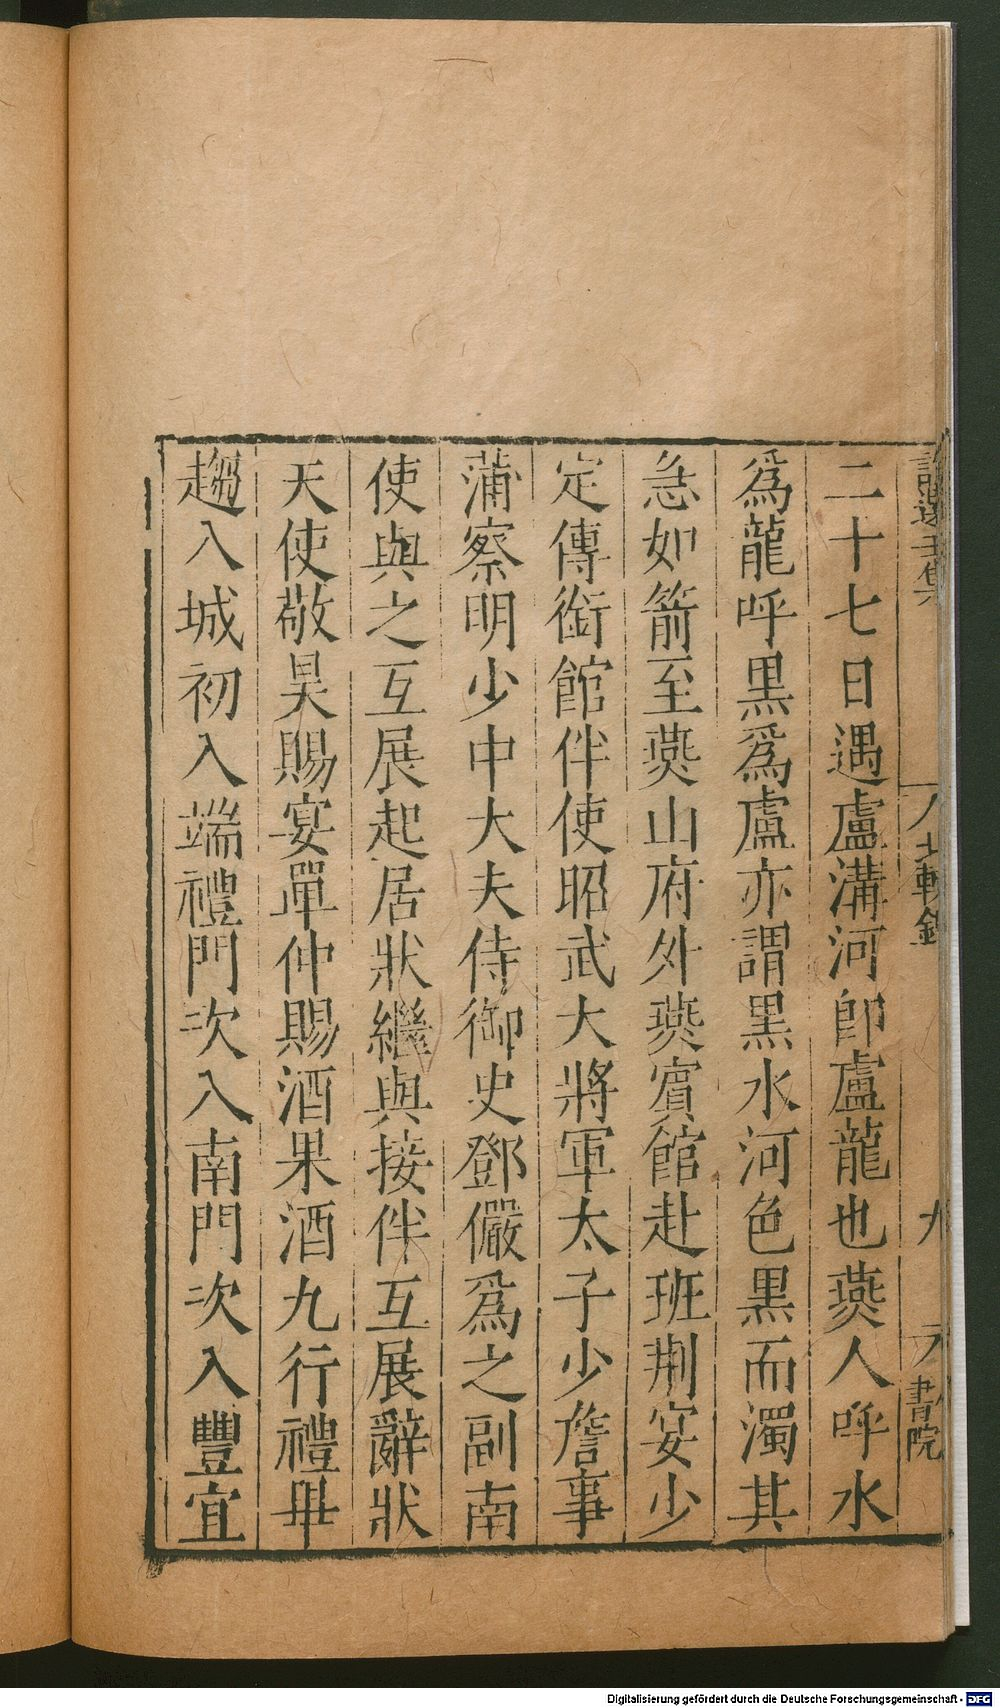 二十七日遇盧溝河卽盧龍也燕人呼水
爲龍呼黑爲盧亦謂黑水河色黑而濁其
急如箭至燕山府外燕賔館赴班荆宴少
定傳銜館伴使昭武大將軍太子少詹事
蒲察明少中大夫侍御史鄧儼爲之副南
使與之互展起居狀繼與接伴互展辭狀
天使敬昊賜宴單仲賜酒果酒九行禮畢
趨入城初入端禮門次入南門次入豐宜
北轅錄
九
書院
Digitalisierung gefördert durch die Deutsche Forschungsgemeinschaft - DFG